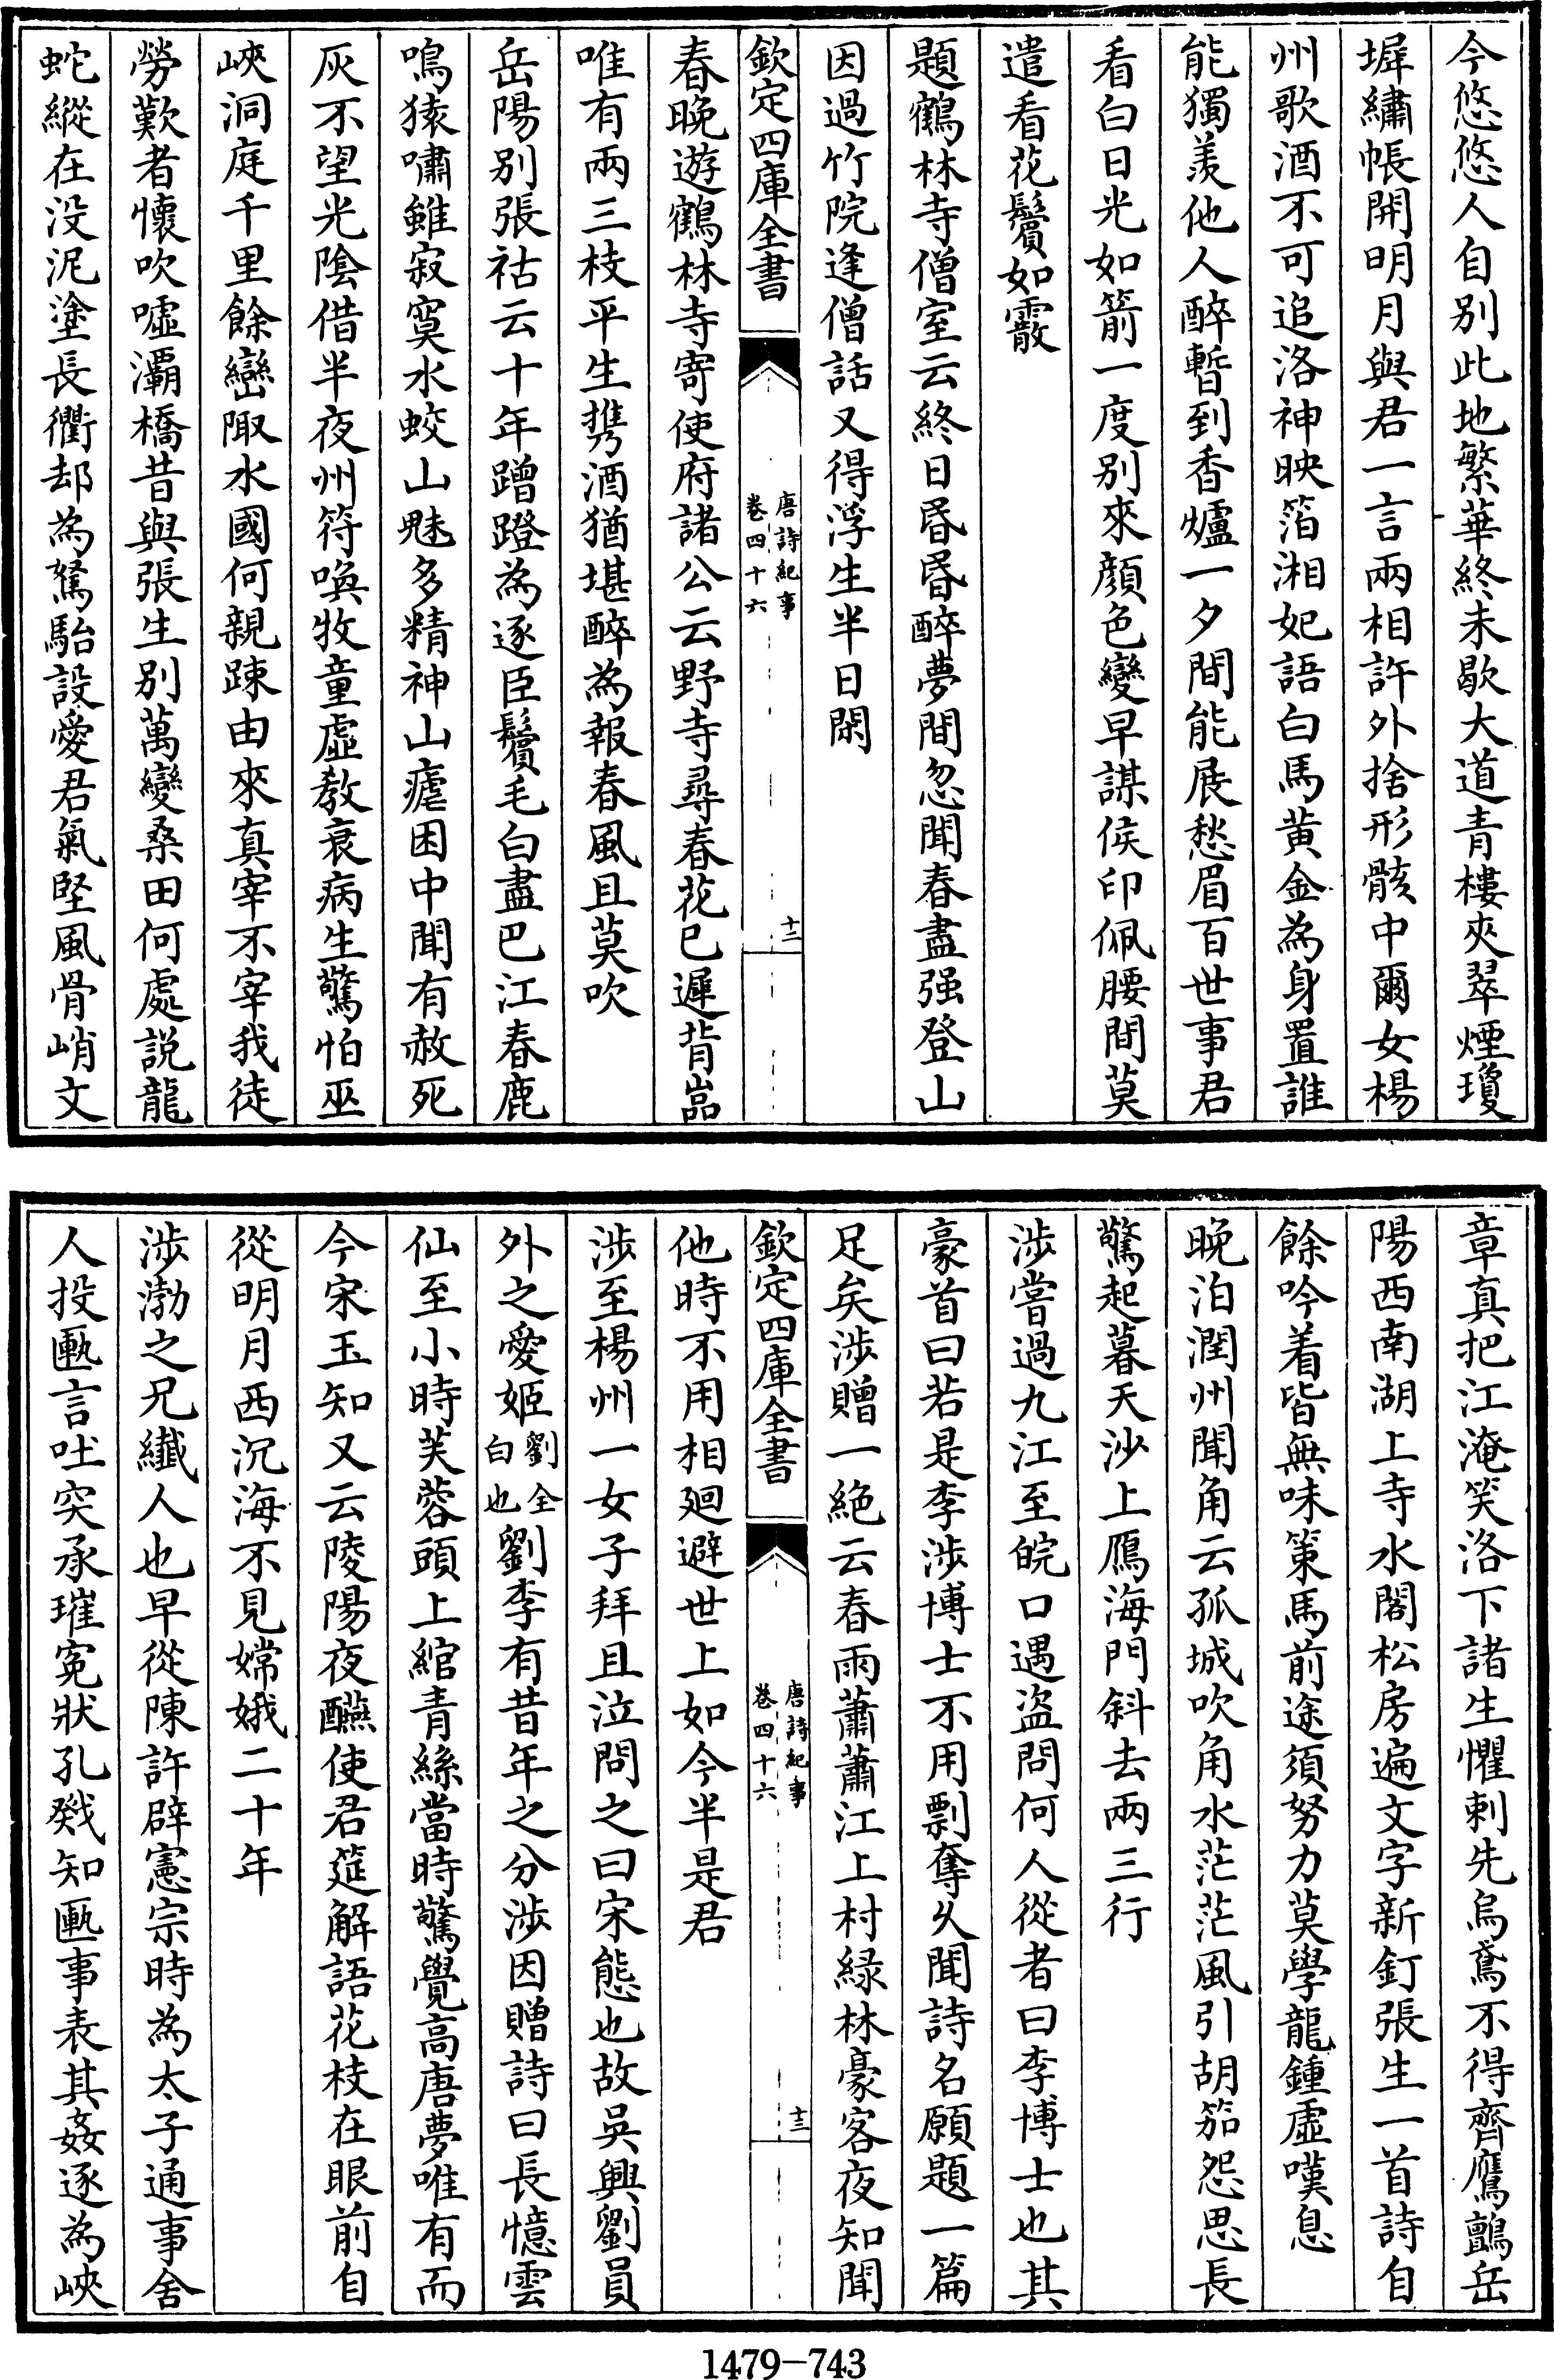 今悠悠人自别此地繁華終未歇大道青樓夾翠煙瓊
墀繡帳開明月與君一言兩相許外捨形骸中爾女楊
州歌酒不可追洛神映箔湘妃語白馬黄金為身置誰
能獨羨他人醉暫到香爐一夕間能展愁眉百世事君
看白日光如箭一度别來顔色變早謀侯印佩腰間莫
遣看花鬢如霰
題鶴林寺僧室云終日昏昏醉夢間忽聞春盡强登山
因過竹院逢僧話又得浮生半日閑
欽定四庫全書
唐詩紀事
卷四十六
十二
春晚遊鶴林寺寄使府諸公云野寺尋春花已遲背嵓
唯有兩三枝平生携酒猶堪醉為報春風且莫吹
岳陽别張祜云十年蹭蹬為逐臣鬢毛白盡巴江春鹿
鳴猿嘯雖寂寞水蛟山魅多精神山瘧困中聞有赦死
灰不望光陰借半夜州符喚牧童虛教衰病生驚怕巫
峽洞庭千里餘巒陬水國何親踈由來真宰不宰我徒
勞歎者懷吹噓灞橋昔與張生别萬變桑田何處説龍
蛇縱在没泥塗長衢却為駑駘設愛君氣堅風骨峭文
章真把江淹笑洛下諸生懼刺先烏鳶不得齊鷹鸇岳
陽西南湖上寺水閣松房遍文字新釘張生一首詩自
餘吟着皆無味策馬前途須努力莫學龍鍾虛嘆息
晚泊潤州聞角云孤城吹角水茫茫風引胡笳怨思長
驚起暮天沙上鴈海門斜去兩三行
涉嘗過九江至皖口遇盗問何人從者曰李博士也其
豪首曰若是李涉博士不用剽奪久聞詩名願題一篇
足矣涉贈一絶云春雨蕭蕭江上村緑林豪客夜知聞
欽定四庫全書
唐詩紀事
卷四十六
十三
他時不用相廻避世上如今半是君
涉至楊州一女子拜且泣問之曰宋態也故吳興劉員
外之愛姬劉全白也劉李有昔年之分涉因贈詩曰長憶雲
仙至小時芙蓉頭上綰青絲當時驚覺高唐夢唯有而
今宋玉知又云陵陽夜醼使君筵解語花枝在眼前自
從明月西沉海不見嫦娥二十年
涉渤之兄纎人也早從陳許辟憲宗時為太子通事舍
人投匭言吐突承璀寃狀孔戣知匭事表其姦逐為峽
1479-743